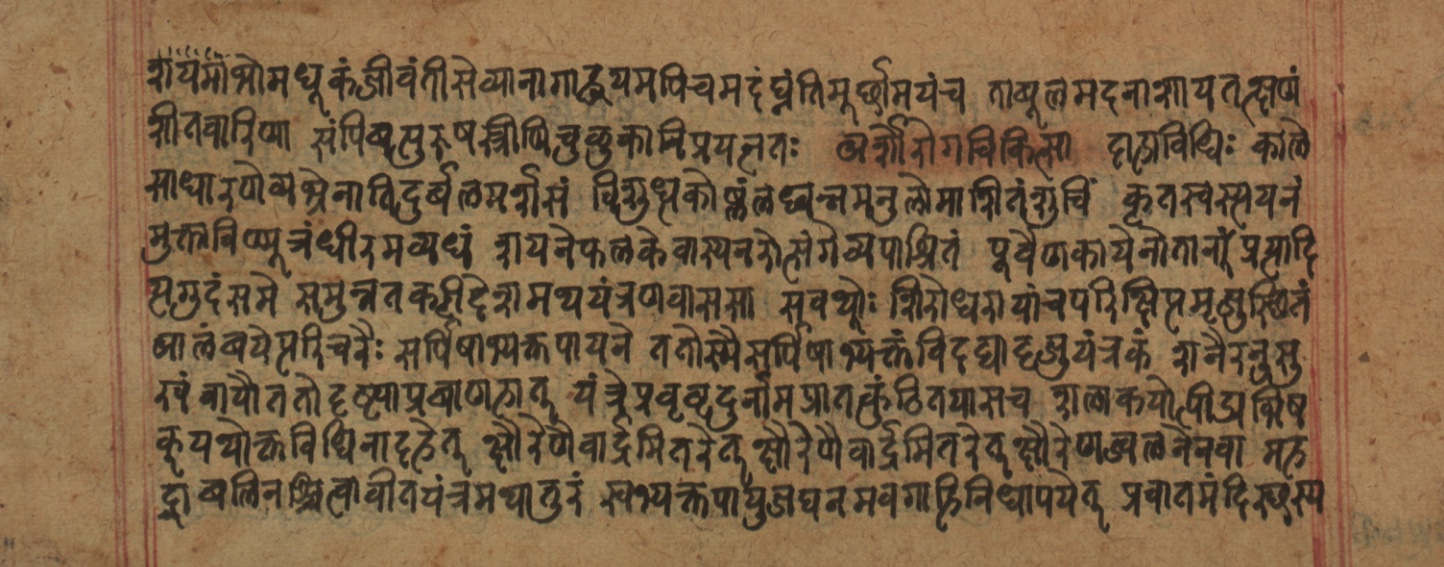 रायमाश्नोमधूकंजीवंतीसेव्यानागाह्वयमपिचमदंघ्नंतिमूर्छामयंच ताम्बूलमदनाशायतत्क्षणं
शीतवारिणा संपिबेत्पुरुषस्त्रीणिचुलुकानिप्रयत्नतः अर्शोरोगचिकित्सा दाहविधिः काले
साधारणेव्यभ्रेनातिदुर्बलमर्शसं विशुध्दकोष्ठंलघ्वन्नमनुलोमाशितंशुचिं कृतस्वस्त्ययनं
मुक्तविण्मूत्रंधीरमव्यथं शयनेफलकेवास्यनरोत्संगेव्यपाश्रितं पूर्वेणकायेनोतानं प्रत्यादि
त्यगुदंसमे समुन्नतकटीदेशमथयंत्रणवाससा सक्थ्नोः शिरोधरायांचपरिक्षिप्तमृजुस्थितं
आलंबयेत्परिचरैः सर्पिषाभ्यक्तपायवे ततोस्मैसर्पिषाभ्यक्तंविदद्यादृजुयंत्रकं शनैरनुसु
खंपायौततोदृष्ट्वाप्रवाहणात् यंत्रेप्रवृष्टदुर्नामप्रातत्कुंठितयासच शलाकयोत्पीड्यभिष
क्यथोक्तविधिनादहेत् क्षौरेणैवार्द्रमितरेत् क्षौरेणैवार्द्रमितरेत् क्षौरेणज्वलनेनवा मह
द्वाबलिनश्छित्वावीतयंत्रमथातुरं स्वभ्यक्तपायुजघनमवगाहेनिधापयेत् प्रवातमंदिरस्थस्य